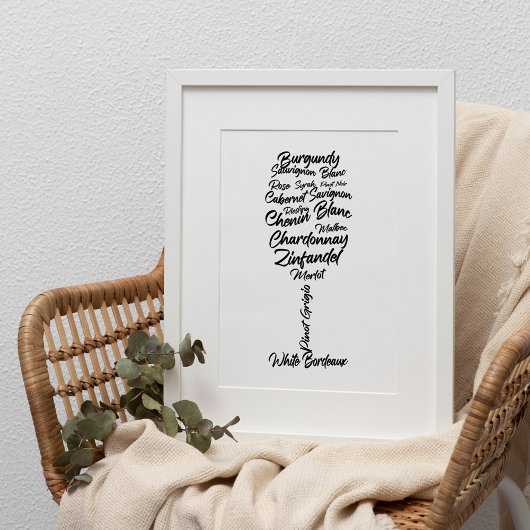 Burgundy
Sauvignon Blanc
Rose Syrah Pinot Noir
Cabernet Sauvignon
Riesling
Chenin Blanc
Malbec
Chardonnay
Zinfandel
Merlot
Pinot Grigio
White Bordeaux